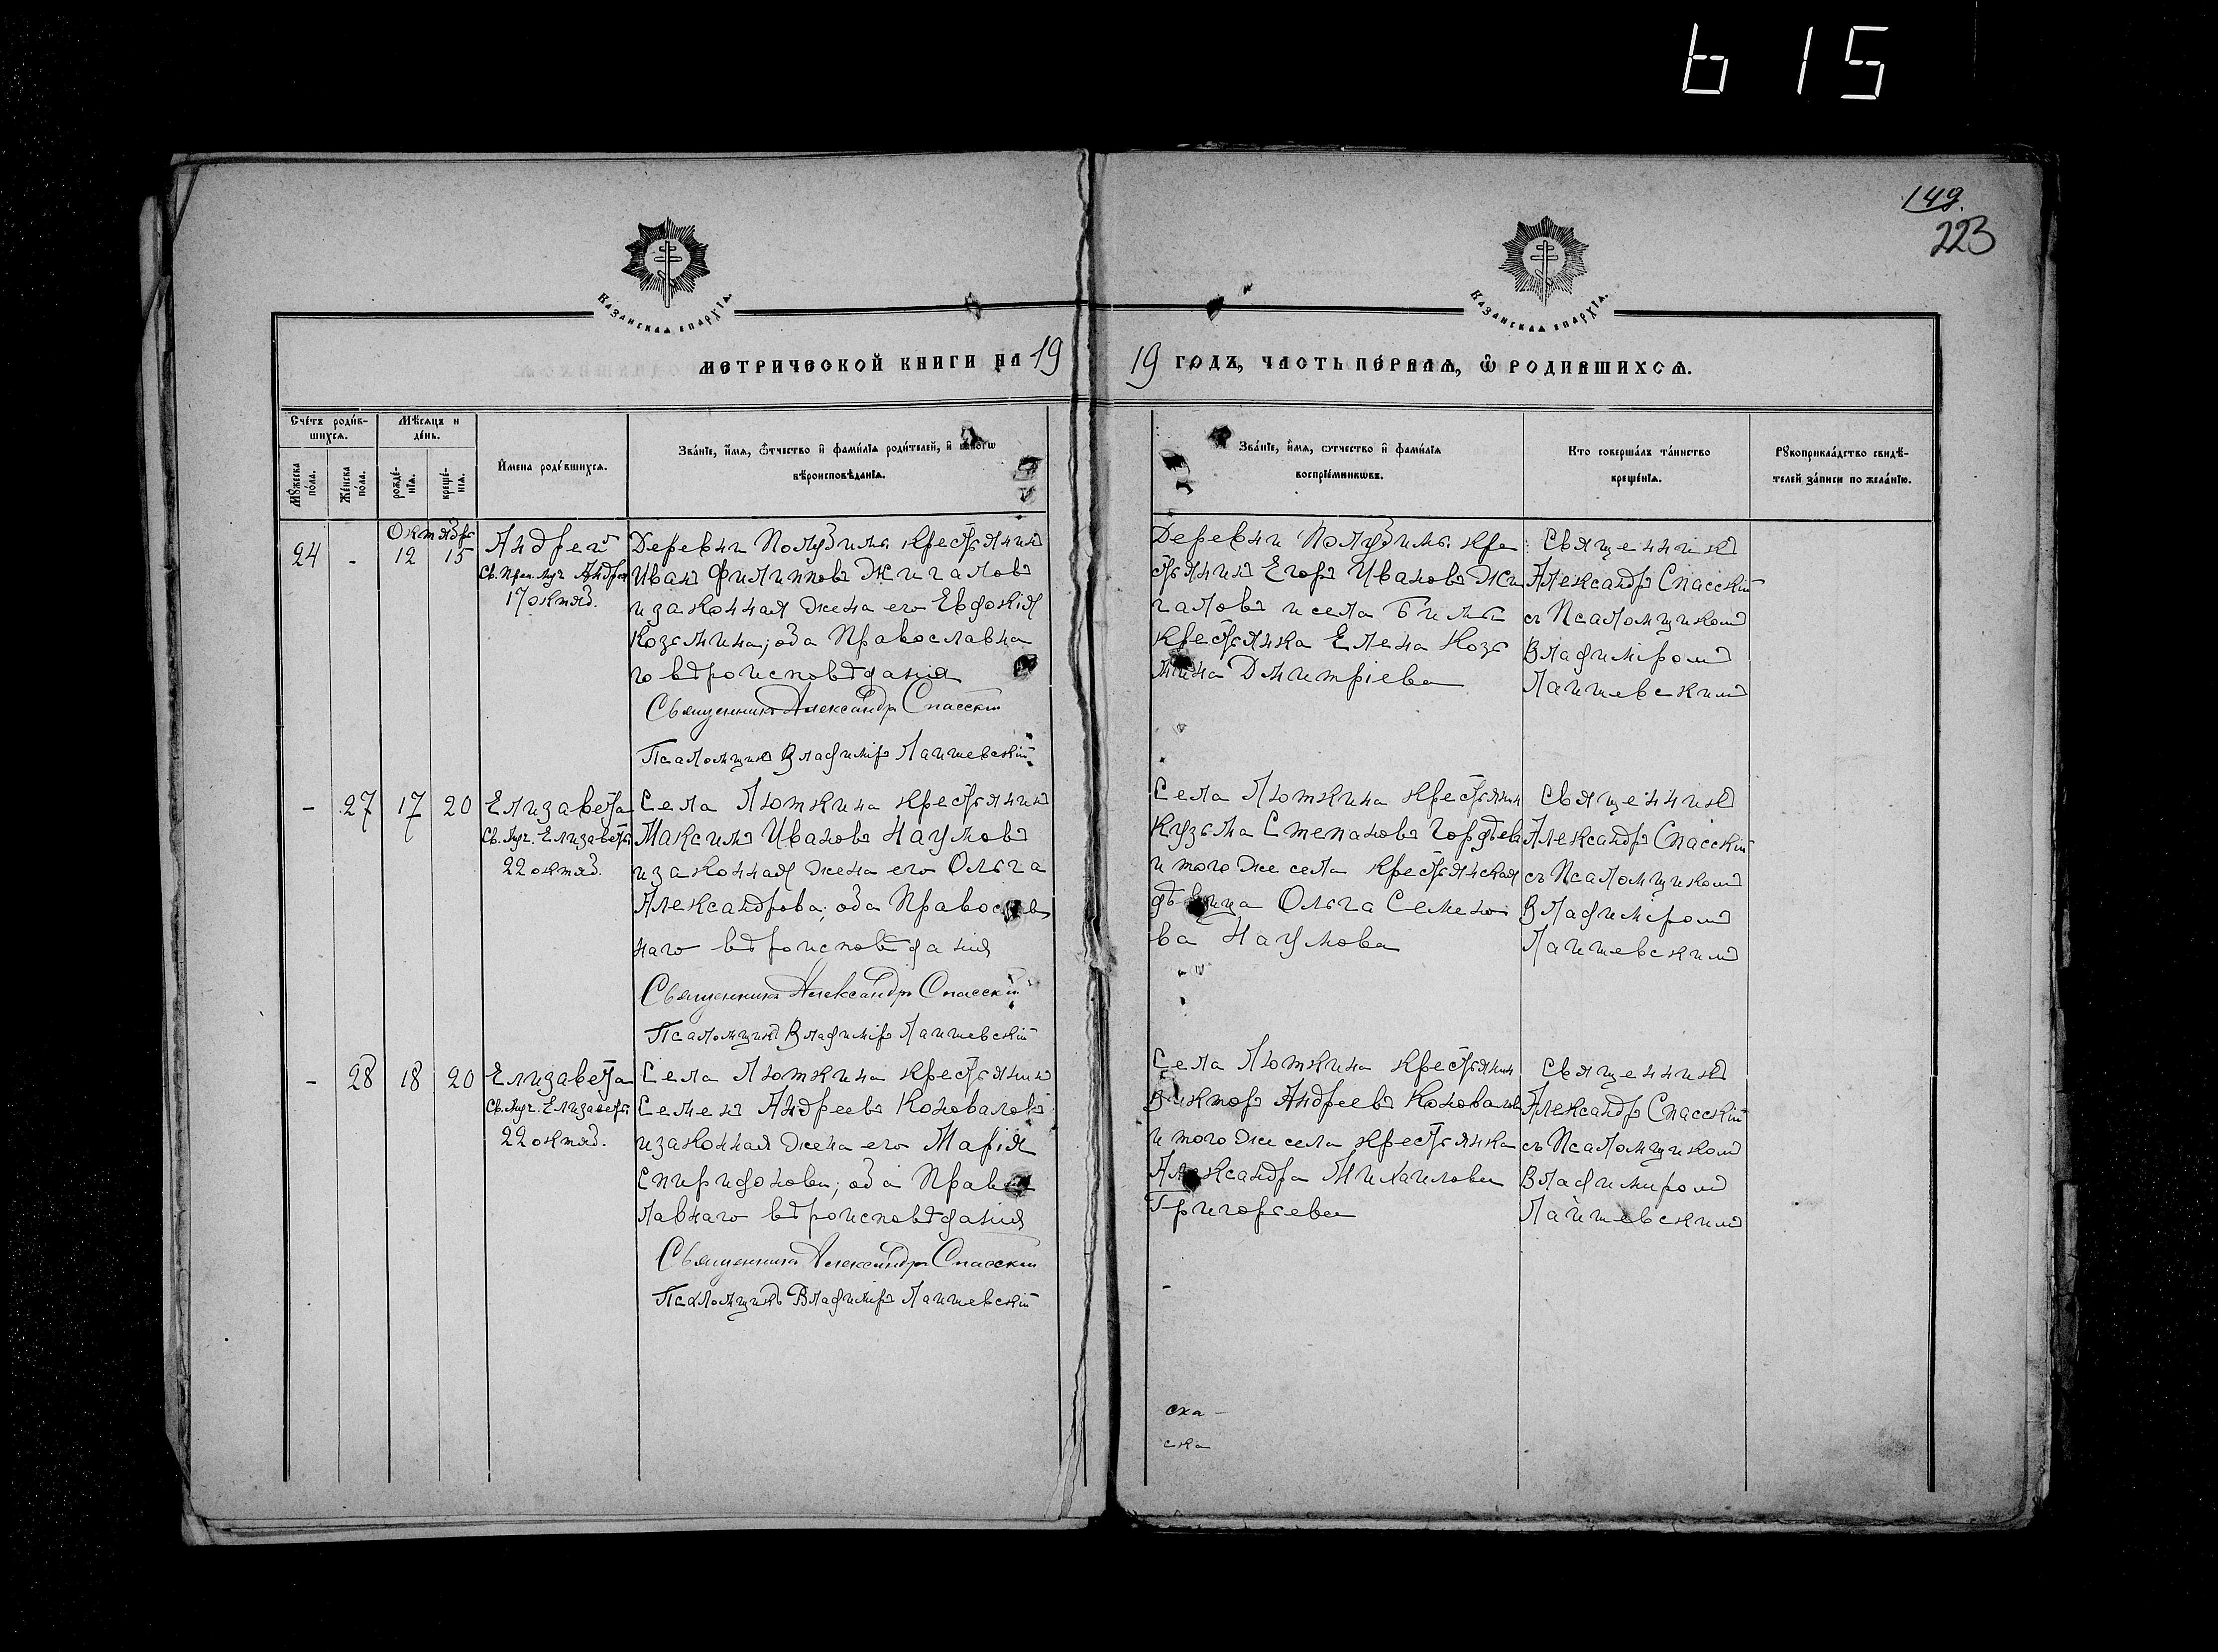 615
149.
223
Казанская епархїѧ.
Казанская епархїѧ.
метрической книги на 1919 годъ, часть пе́рваѧ, ѡ҆ роди́вшихсѧ.
Сче́тъ роди́в-
шихсѧ.
Мѣ́сѧцъ и
де́нь.
И҆мена роди́вшихсѧ.
Зва́нїе, и҆́мѧ, ѻ҆́тчество и҆ фами́лїѧ роди́телей, и҆ какогѡ
вѣроисповѣ́данїѧ.
Мꙋ́жеска
по́ла.
Же́нска
по́ла.
рожде́-
нїѧ.
креще́-
нїѧ.
Зва́нїе, и҆́мѧ, ѻтчество и҆ фами́лїѧ
воспрїе́мникѡвъ.
Кто соверша́лъ та́инство
креще́нїѧ.
Рꙋкоприкла́дство свидѣ́-
телей за́писи по жела́нїю.
Октябрь
24 - 12 15 Андрей
Св. Прп. Муч. Андрея
17 октяб.
Деревни Полузима крестьянинъ
Иванъ Филипповъ Жигаловъ
и законная жена его Евдокія
Козьмина; оба Православна
го вѣроисповѣданія
Священникъ Александръ Спасскій
Псаломщикъ Владиміръ Лаишевскій
Деревни Полузима кре
стьянинъ Егоръ Ивановъ Жи
галовъ и села Бимы
крестьянка Елена Козь
мина Дмитріева
Священникъ
Александръ Спасскій
съ Псаломщикомъ
Владиміромъ
Лаишевскимъ
- 27 17 20 Елизавета
Св. Муч. Елизаветы
22 октяб.
Села Люткина крестьянинъ
Максимъ Ивановъ Наумовъ
и законная жена его Ольга
Александрова; оба Православ
наго вѣроисповѣданія
Священникъ Александръ Спасскій
Псаломщикъ Владиміръ Лаишевскій
Села Люткина крестьянин
Кузьма Степановъ Гордѣевъ
и того же села крестьянская
дѣвица Ольга Семено
ва Наумова
Священникъ
Александръ Спасскій
съ Псаломщикомъ
Владиміромъ
Лаишевскимъ
- 28 18 20 Елизавета
Св. Муч. Елизаветы
22 октяб.
Села Люткина крестьянинъ
Семенъ Андреевъ Коноваловъ
и законная жена его Марія
Спиридонова; оба Правос
лавнаго вѣроисповѣданія
Священникъ Александръ Спасскій
Псаломщикъ Владиміръ Лаишевскій
Села Люткина крестьянин
Викторъ Андреевъ Коноваловъ
и того же села крестьянка
Александра Михаилова
Григорьева
Священникъ
Александръ Спасскій
съ Псаломщикомъ
Владимиромъ
Лаишевскимъ
ска